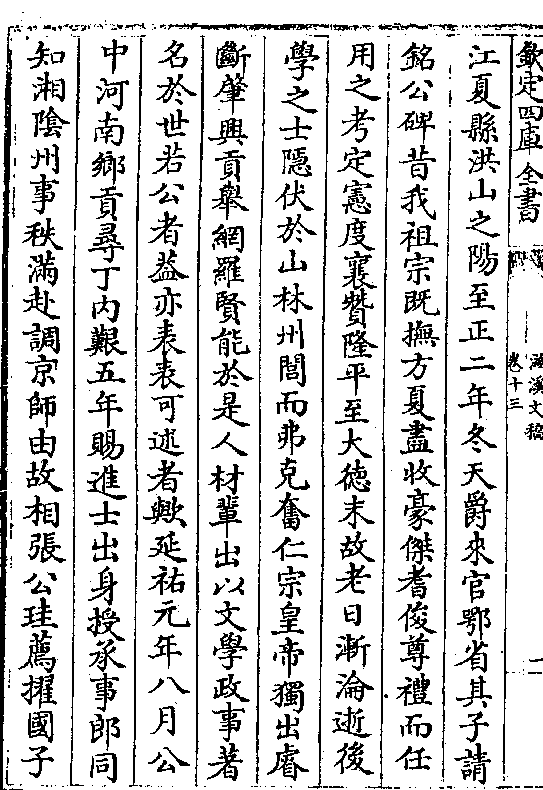 欽定四庫全書
滋溪文稿
卷十三
二
江夏縣洪山之陽至正二年冬天爵來官鄂省其子請
銘公碑昔我祖宗既撫方夏盡收豪傑耆俊尊禮而任
用之考定憲度襄贊隆平至大徳末故老日漸淪逝後
學之士隱伏於山林州閭而弗克奮仁宗皇帝獨出睿
斷肇興貢舉網羅賢能於是人材輩出以文學政事著
名於世若公者葢亦表表可述者歟延祐元年八月公
中河南鄉貢尋丁内艱五年賜進士出身授承事郎同
知湘隂州事秩滿赴調京師由故相張公珪薦擢國子